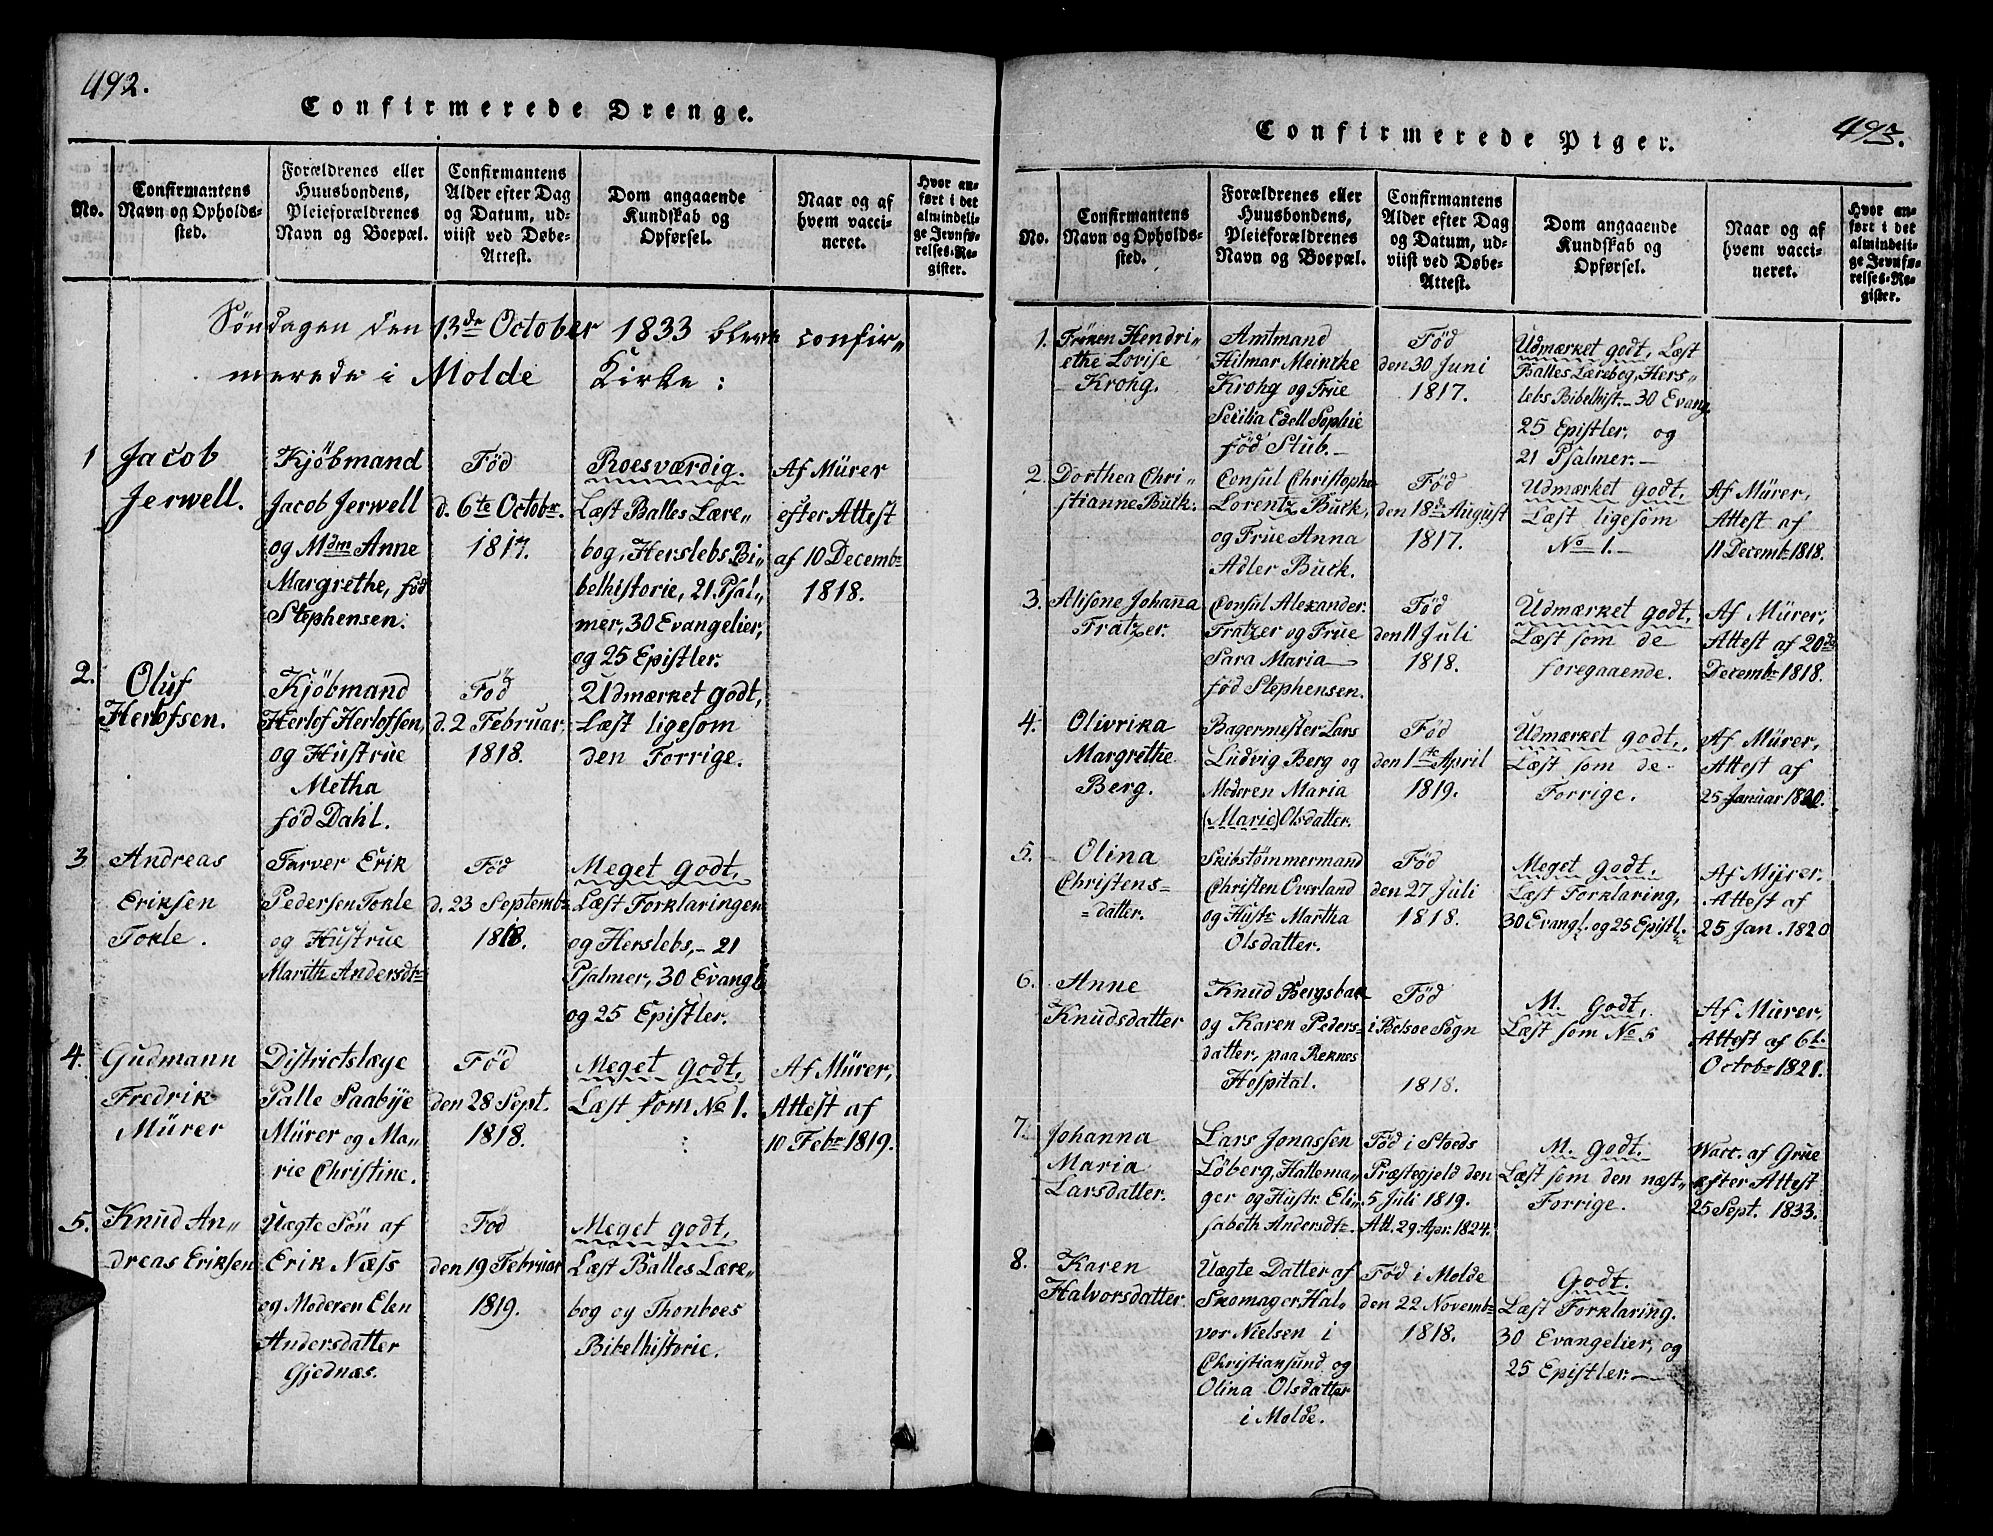 492.
Confirmerede Drenge.
No.
Confirmantens
Navn og Opholds-
sted.
Forældrenes eller
Huusbondens,
Pleieforældrenes
Navn og Boepæl.
Confirmantens
Alder efter Dag
og Datum, ud-
viist ved Døbe-
Attest.
Dom angaaende
Kundskab og
Opførsel.
Naar og af
hvem vacci-
neret.
Hvor an-
ført i det
almindeli-
ge Jevnfø-
relses-Re-
gister.
Söndagen den 13de October 1833 bleve confir„
merede i Molde Kirke:
1 Jacob
Jerwell.
Kjöbmand
Jacob Jerwell
og Mdm Anne
Margrethe, fød
Stephensen.
Fød
d. 6te Octobr.
1817.
Roesværdig.
Læst Balles Lære„
bog, Herslebs Bi„
belhistorie, 21. Psal„
mer, 30 Evangelier,
og 25 Epistler.
Af Mürer
efter Attest
af 10 Decembr
1818.
2. Oluf
Herlofsen.
Kjöbmand
Herlof Herlofsen,
og Hustrue
Metha
fød Dahl.
Fød
d. 2 Februar,
1818.
Udmærket godt,
Læst ligesom
den Forrige.
3 Andreas
Eriksen
Tokle.
Farver Erik
Pedersen Tokle
og Hustrue
Marith Andersdtr
Fød
d. 23 Septembr
1818.
Meget godt,
Læst Forklaringen
og Herslebs, – 21
Psalmer, 30 Evangl
og 25 Epistler.
4. Gudmann
Fredrik
Mürer
Districtslæge
Palle Saabÿe
Mürer og Ma„
rie Christine.
Fød
den 28 Sept.
1818.
Meget godt,
Læst som No 1.
Af Mürer,
Attest af
10 Febr 1819.
5. Knud An„
dreas Eriksen
Uægte Søn af
Erik Næss
og Moderen Elen
Andersdatter
Gjednæs.
Fød
den 19 Februar
1819.
Meget godt,
Læst Balles Lære„
bog og Thonboes
Bibelhistorie.
493.
Confirmerede Piger.
No.
Confirmantens
Navn og Opholds-
sted.
Forældrenes eller
Huusbondens,
Pleieforældrenes
Navn og Boepæl.
Confirmantens
Alder efter Dag
og Datum, ud-
viist ved Døbe-
Attest.
Dom angaaende
Kundskab og
Opførsel.
Naar og af
hvem vacci-
neret.
Hvor an-
ført i det
almindeli-
ge Jevnfø-
relses-Re-
gister.
1. Fröken Hendri„
ethe Lovise
Krohg.
Amtmand
Hilmar Meintke
Krohg og Frue
Secilia Edell Sophie
fød Stub. –
Fød
den 30 Juni
1817.
Udmærket godt, Læst
Balles Lærebog, Hers„
lebs Bibelhist. – 30 Evang.
25 Epistler, og
21 Psalmer. –
2. Dorthea Chri„
stianne Buck.
Consul Christopher
Lorentz Buck,
og Frue Anna
Adler Buck.
Fød
den 18de August
1817.
Udmærket godt,
Læst ligesom
No 1. –
Af Mürer,
Attest af
11 Decembr 1818.
3. Alisone Johanna
Fratzer.
Consul Alexander
Fratzer og Frue
Sara Maria
fød Stephensen.
Fød
den 11 Juli
1818.
Udmærket godt,
Læst som de
foregaaende.
Af Mürer,
Attest af 20de
Decembr 1818.
4. Olivrika
Margrethe
Berg.
Bagermester Lars
Ludvig Berg og
Moderen Maria
(Marie) Olsdatter.
Fød
den 1ste April
1819.
Udmærket godt,
Læst som de
Forrige.
Af Mürer,
Attest af
25 Januar 1820.
5. Olina
Christens=
=datter.
Skibstømmermand
Christen Overland
og Hustr Martha
Olsdatter.
Fød
den 27 Juli
1818.
Meget godt,
Læst Forklaring,
30 Evangl. og 25 Epistl.
Af Mÿrer,
Attest af
25 Jan. 1820
6. Anne
Knudsdatter
Knud Bergsbak
og Karen Peders„
datter, paa Reknes
Hospital.
Fød
i Bolsoe Sogn
1818.
M. godt,
Læst som No 5
Af Mürer,
Attest af 6te
Octobr 1821.
7. Johanna
Maria
Larsdatter.
Lars Jonassen
Löberg, Hattema„
ger og Hustr. Eli„
sabeth Andersdtr.
Fød i Stoeds
Præstegjeld den
5 Juli 1819.
Att. 29. Apr. 1824.
M. godt.
Læst som den næst„
Forrige.
Vacc. af Grue
efter Attest
25 Sept. 1833.
8. Karen
Halvorsdatter
Uægte Datter af
Skomager Hal„
vor Nielsen i
Christiansund og
Olina Olsdatter
i Molde.
Fød i Molde
den 22 Novembr
1818.
Godt.
Læst Forklaring.
30 Evangelier, og
25 Epistler. –